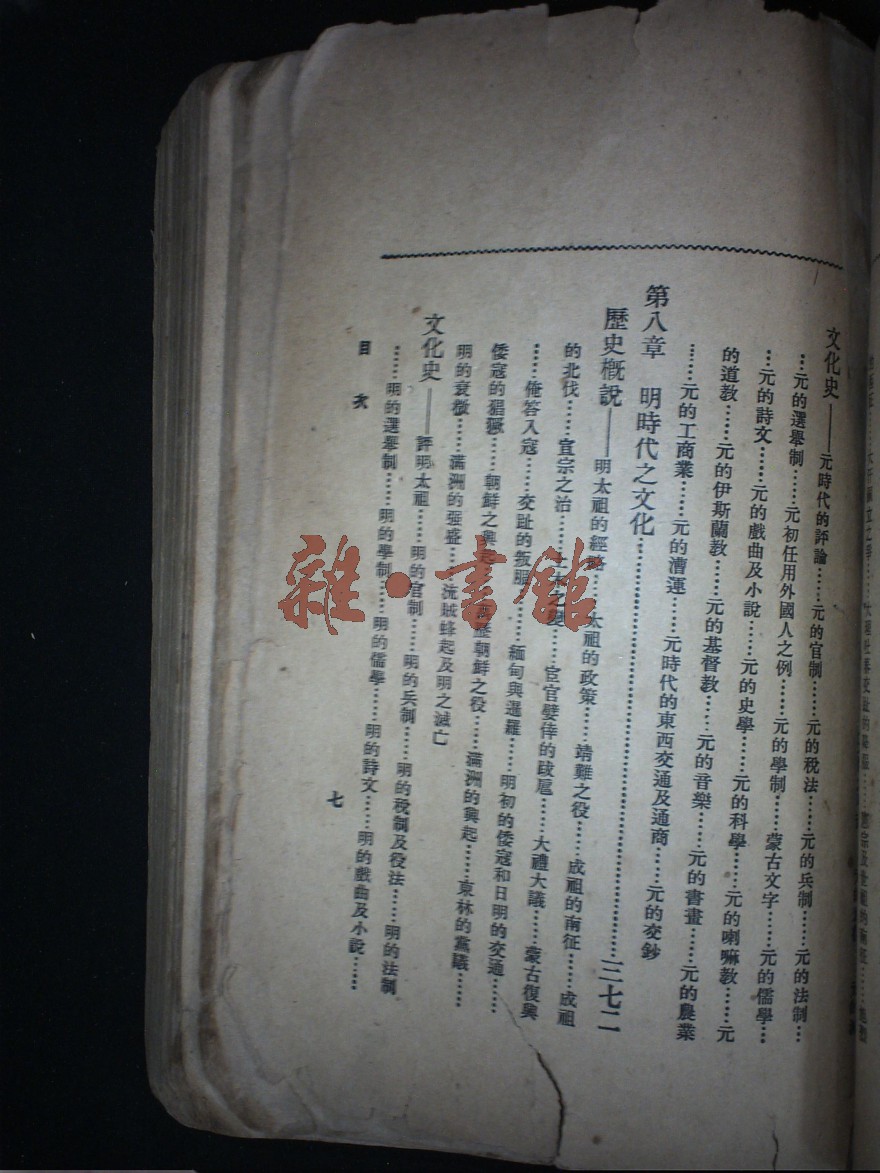 文化史——元時代的評論……元的官制……元的稅法……元的兵制……元的法制…
…元的選舉制……元初任用外國人之例……元的學制……蒙古文字……元的儒學…
…元的詩文……元的戲曲及小說……元的史學……元的科學……元的喇嘛教……元
的道教……元的伊斯蘭教……元的基督教……元的音樂……元的書畫……元的農業
……元的工商業……元的漕運……元時代的東西交通及通商……元的交鈔
第八章 明時代之文化……三七二
歷史概說——明太祖的經略……太祖的政策……靖難之役……成祖的南征……成祖
的北伐……宣宗之治……土木之變……宦官嬖倖的跋扈……大禮大議……蒙古復興
……俺答入寇……交趾的叛服……緬甸與暹羅……明初的倭寇和日明的交通……
倭寇的猖獗……朝鮮之興……萬歷朝鮮之役……滿洲的興起……東林的黨議……
明的衰微……滿洲的强盛……流賊蜂起及明之滅亡
文化史——評明太祖……明的官制……明的兵制……明的稅制及役法……明的法制
……明的選舉制……明的學制……明的儒學……明的詩文……明的戲曲及小說……
目次
七
雜·書館